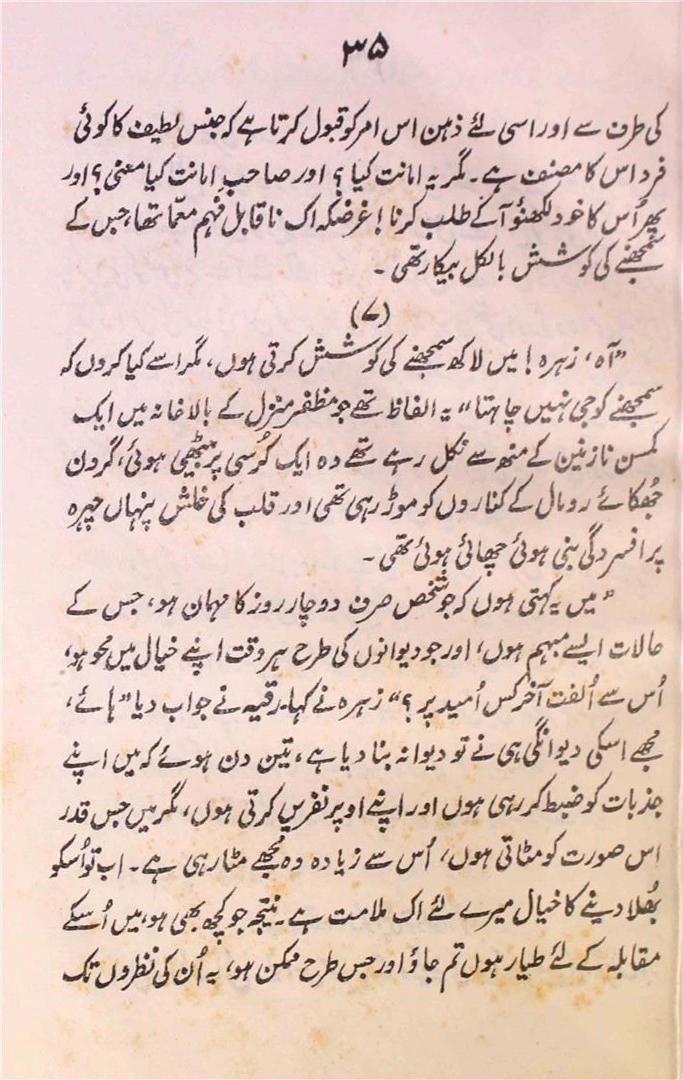 ۳۵
کی طرف سے اور اسی لئے ذہن اس امر کو قبول کرتا ہے کہ جنس لطیف کا کوئی
فرد اس کا مصنف ہے۔ مگر یہ امانت کیا؟ اور صاحبِ امانت کیا معنی؟ اور
پھر اُس کا خود لکھنؤ آکے طلب کرنا! غرضکہ اک ناقابل فہم معمّا تھا، جس کے
سمجھنے کی کوشش بالکل بیکار تھی۔
(۷)
”آہ، زہرہ! میں لاکھ سمجھنے کی کوشش کرتی ہوں، مگر اسے کیا کروں کہ
سمجھنے کو جی نہیں چاہتا“ یہ الفاظ تھے جو مظفر منزل کے بالاخانہ میں ایک
کمسن نازنین کے منھ سے نکل رہے تھے وہ ایک کُرسی پر بیٹھی ہوئی، گردن
جُھکائے رومال کے کناروں کو موڑ رہی تھی اور قلب کی خلش پنہاں چہرہ
پر افسردگی بنی ہوئی چھائی ہوئی تھی۔
”میں یہ کہتی ہوں کہ جو شخص صرف دو چار روز کا مہمان ہو، جس کے
حالات ایسے مبہم ہوں، اور جو دیوانوں کی طرح ہر وقت اپنے خیال میں محو ہو،
اُس سے اُلفت آخر کس اُمید پر؟“ زہرہ نے کہا۔ رقیہ نے جواب دیا ”ہائے،
مجھے اسکی دیوانگی ہی نے تو دیوانہ بنا دیا ہے، تین دن ہوئے کہ میں اپنے
جذبات کو ضبط کر رہی ہوں اور اپنے اوپر نفریں کرتی ہوں، مگر میں جس قدر
اس صورت کو مٹاتی ہوں، اُس سے زیادہ وہ مجھے مٹا رہی ہے۔ اب تو اُسکو
بُھلا دینے کا خیال میرے لئے اک ملامت ہے۔ نتیجہ جو کچھ بھی ہو، میں اُسکے
مقابلہ کے لئے طیار ہوں تم جاؤ اور جس طرح ممکن ہو، یہ اُن کی نظروں تک